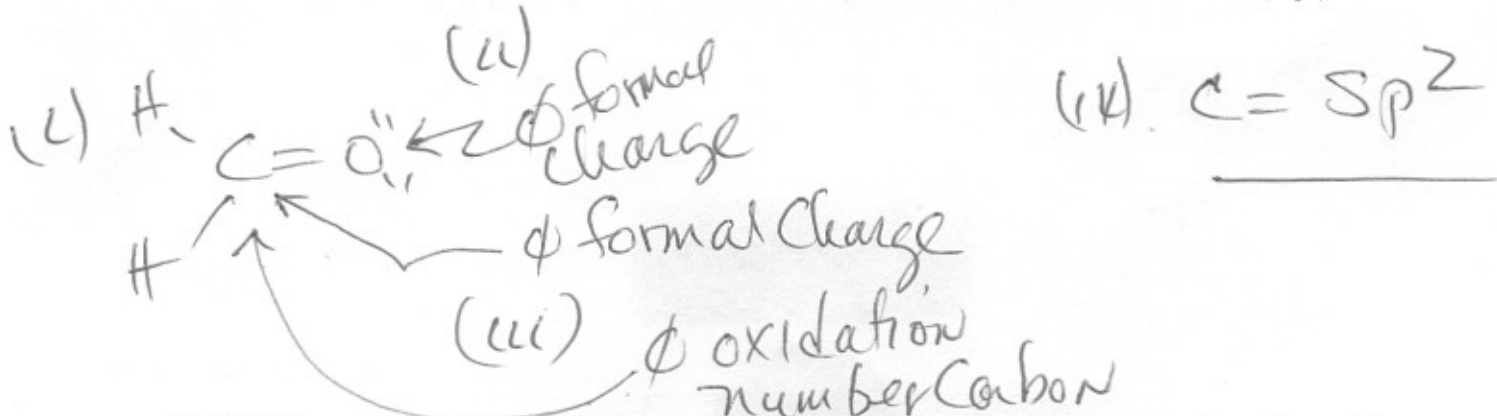 (ii)
φ formal
charge
(i) H
C = O
H
φ formal charge
(iii)
φ oxidation
number Carbon
(iv) C = Sp²